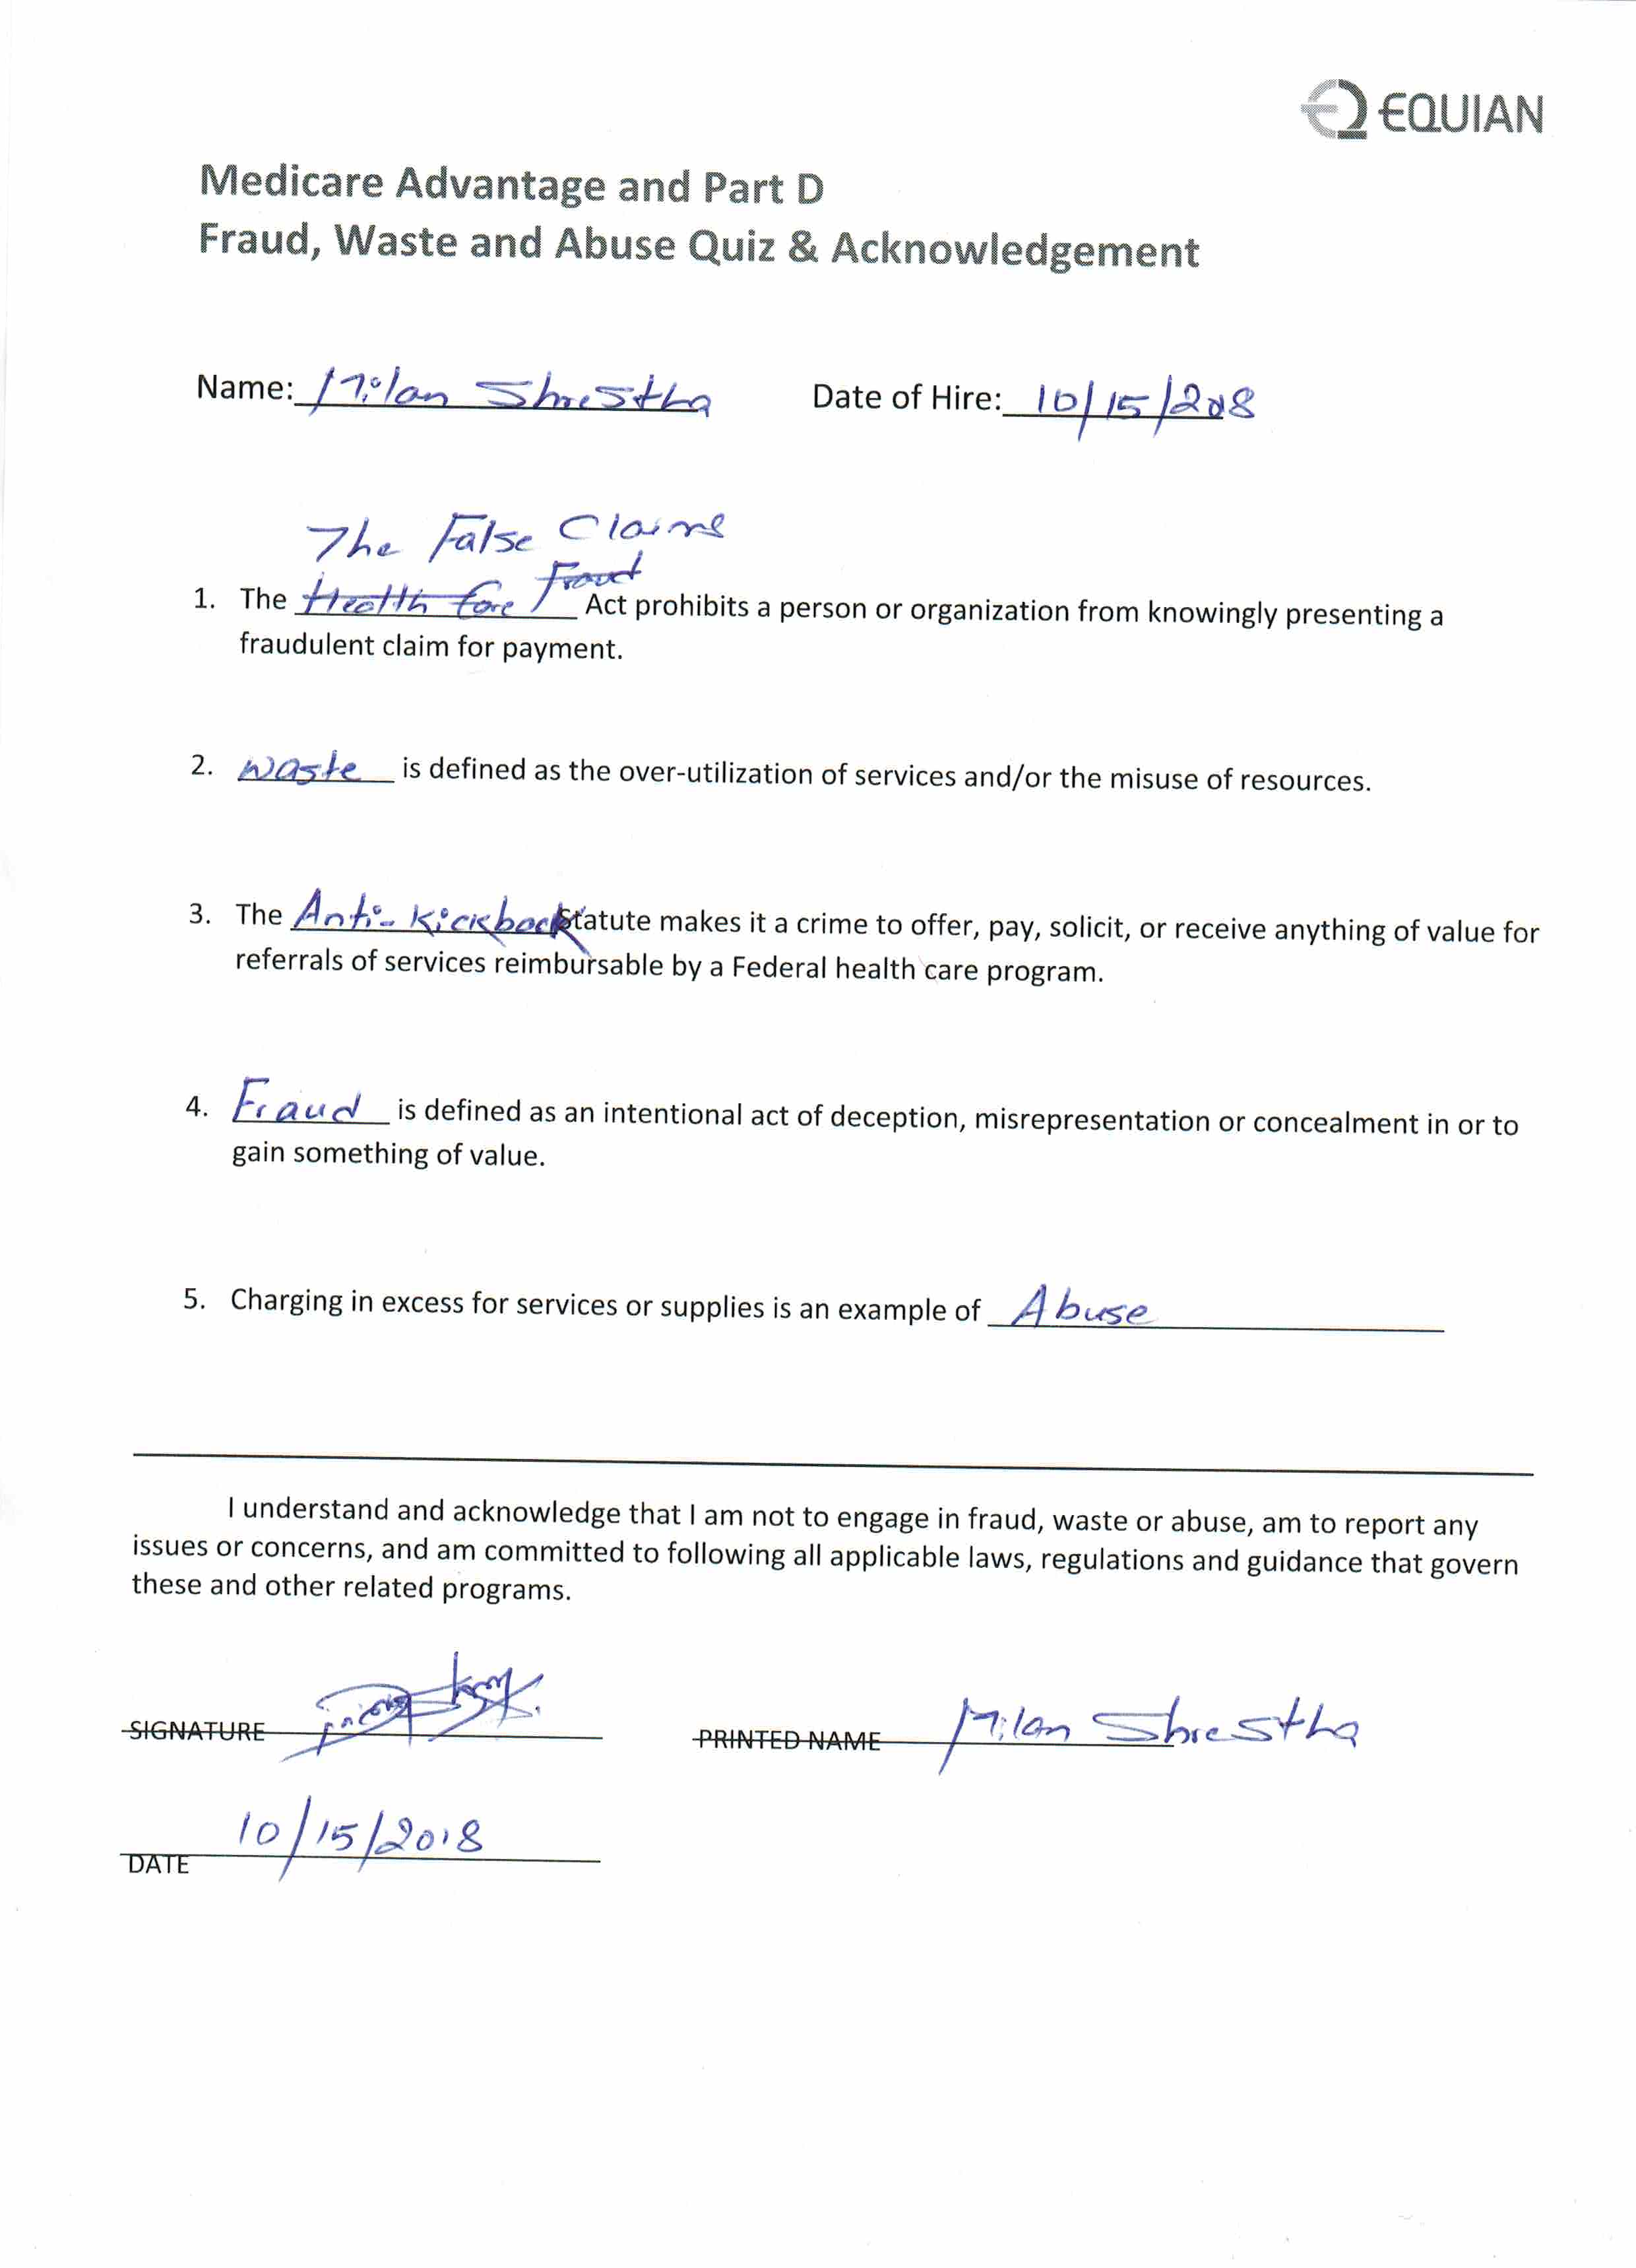 EQUIAN
Medicare Advantage and Part D
Fraud, Waste and Abuse Quiz & Acknowledgement
Name: Milan Shrestha Date of Hire: 10/15/2018
The False Claims
1. The Health Care Fraud Act prohibits a person or organization from knowingly presenting a
fraudulent claim for payment.
2. waste is defined as the over-utilization of services and/or the misuse of resources.
3. The Anti-Kickback Statute makes it a crime to offer, pay, solicit, or receive anything of value for
referrals of services reimbursable by a Federal health care program.
4. Fraud is defined as an intentional act of deception, misrepresentation or concealment in or to
gain something of value.
5. Charging in excess for services or supplies is an example of Abuse
I understand and acknowledge that I am not to engage in fraud, waste or abuse, am to report any
issues or concerns, and am committed to following all applicable laws, regulations and guidance that govern
these and other related programs.
SIGNATURE PRINTED NAME Milan Shrestha
10/15/2018
DATE